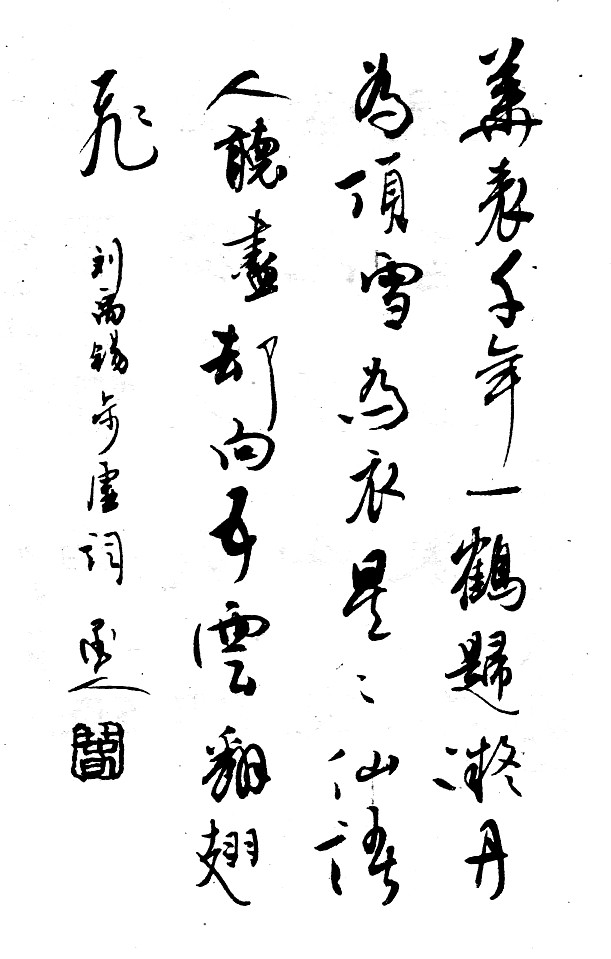 華表千年一鶴歸凝丹
為頂雪為衣星〻仙語
人聽盡却向五雲翻翅
飛 刘禹锡步虛词